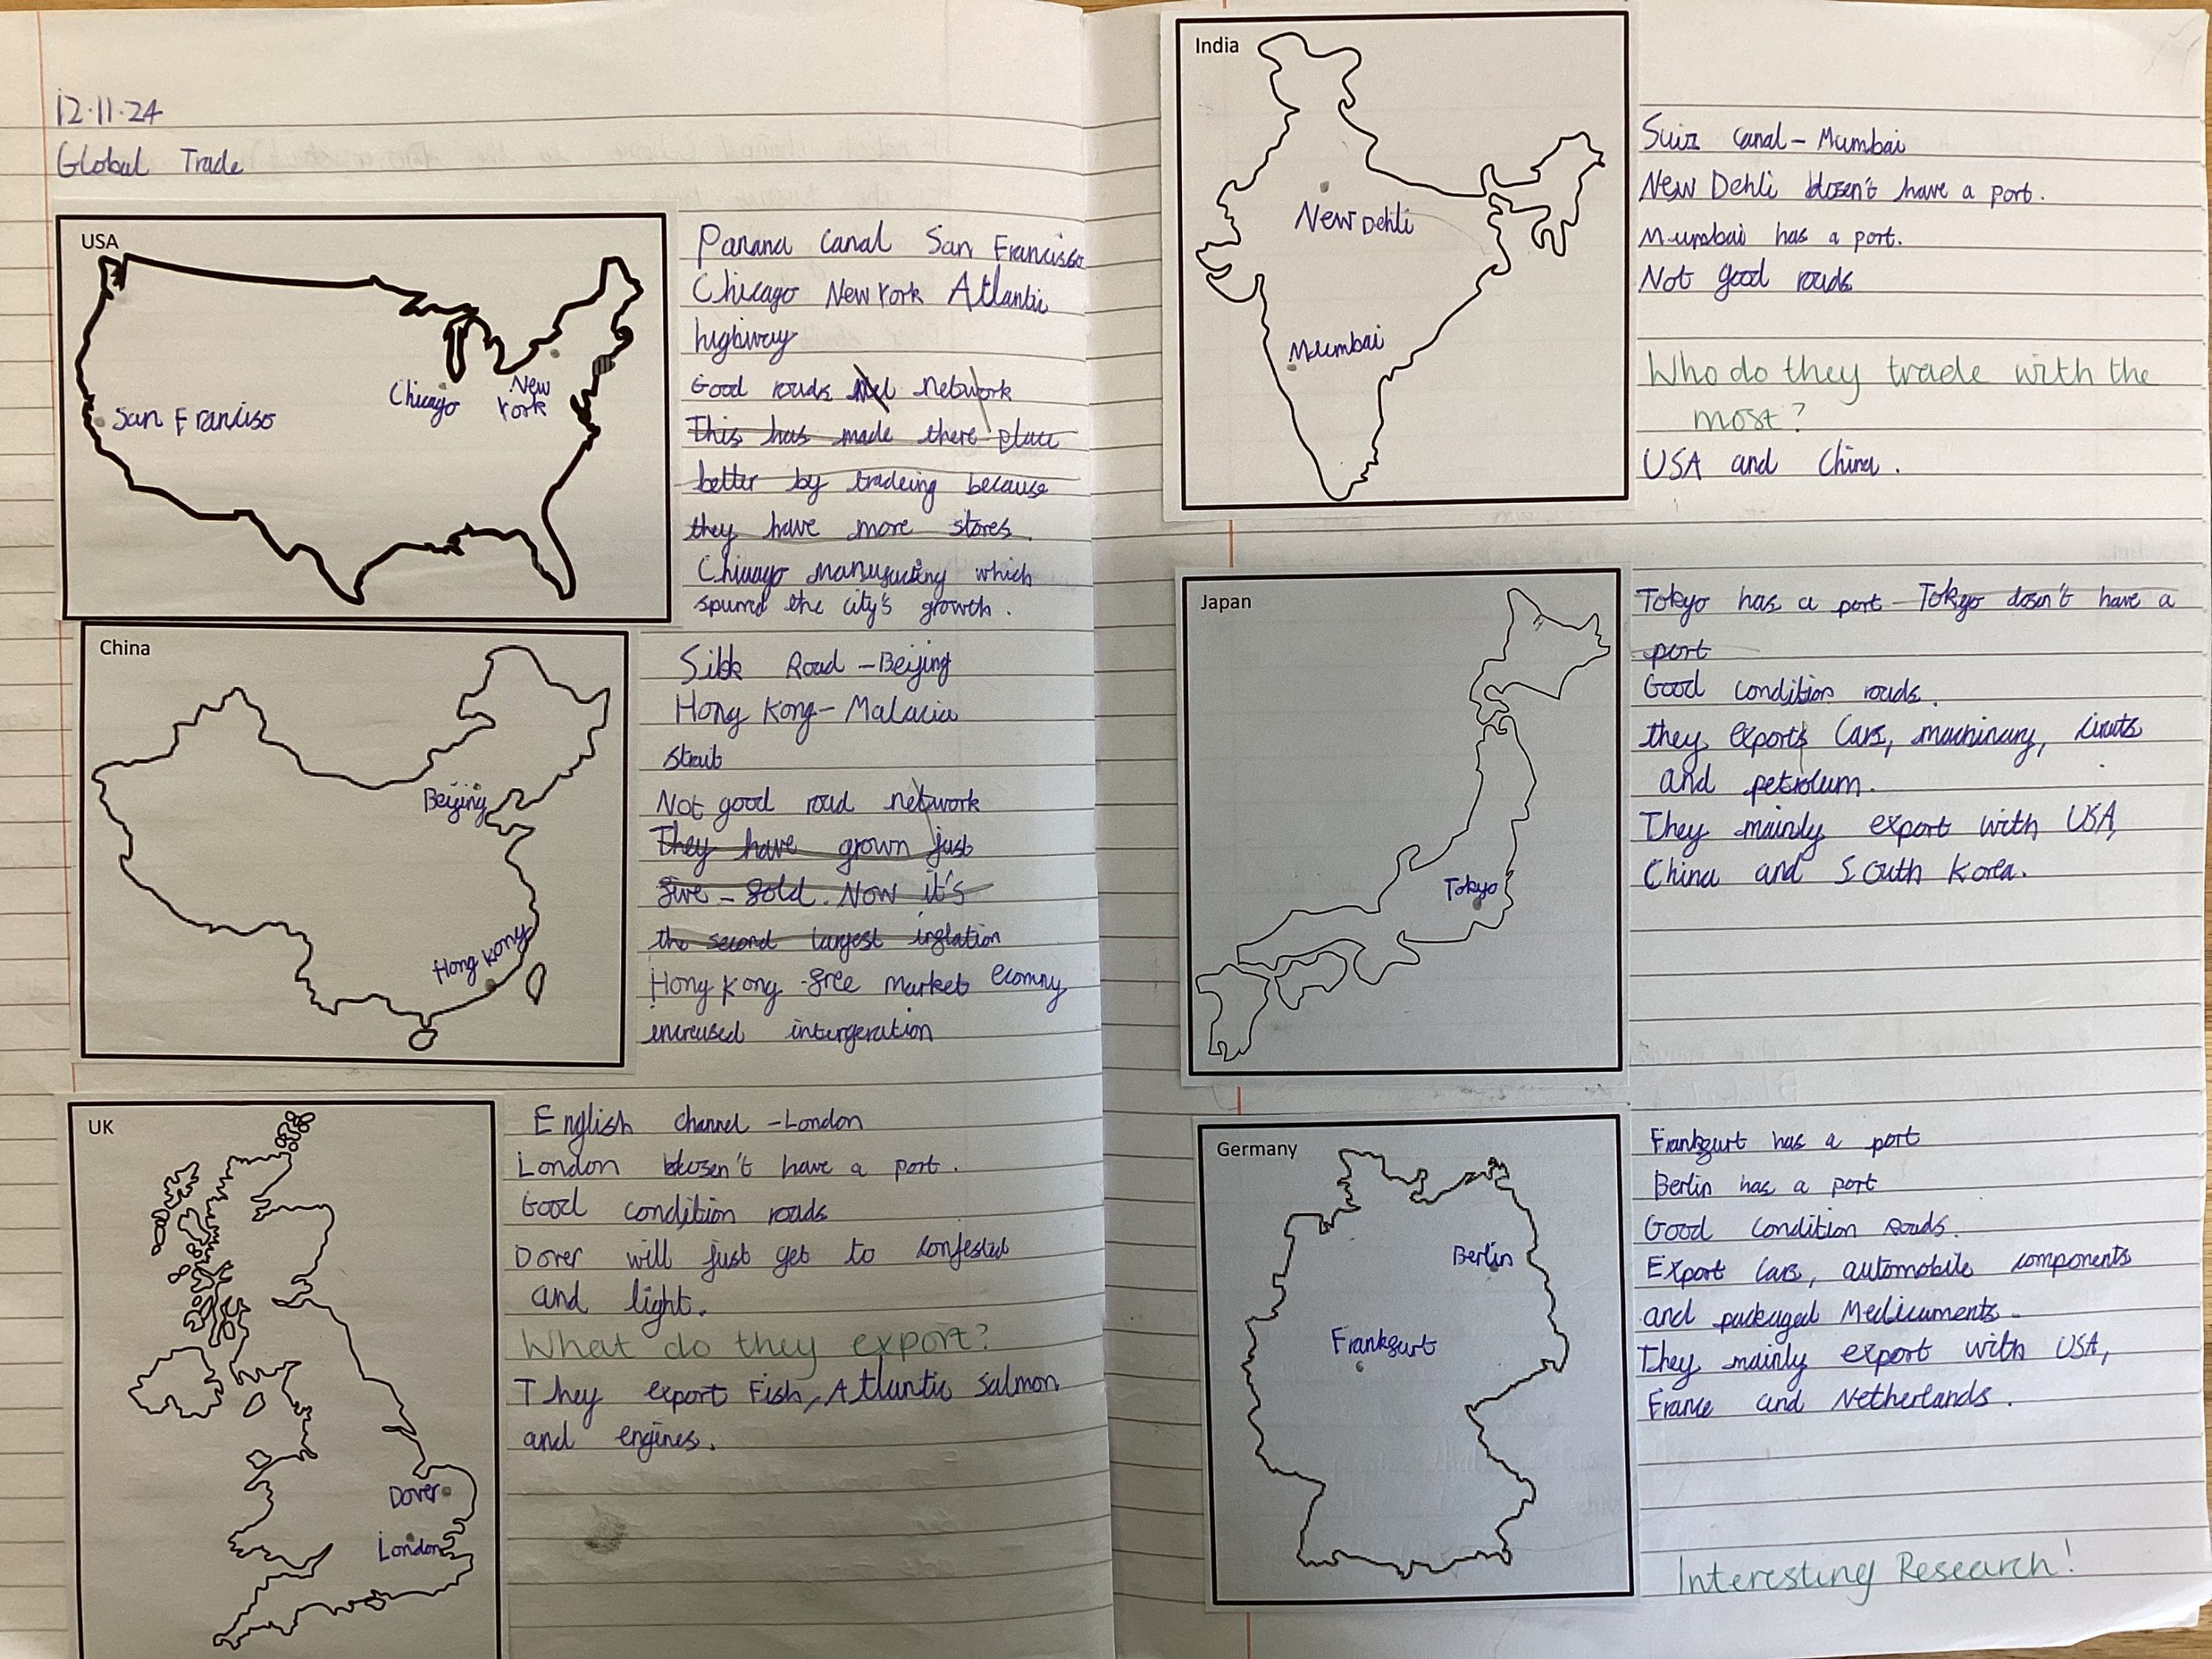 12.11.24
Global Trade
USA
San Franciso
Chicago
New
York
Panana Canal San Francisso
Chicago New York Atlantic
highway
Good roads network
This has made there place
better by tradeing because
they have more stores.
Chicago manufucting which
spurred the city's growth.
China
Beijing
Hong Kong
Silk Road - Beijing
Hong Kong - Malacia
strait
Not good road network
They have grown just
five - fold. Now it's
the second largest inflation
Hong Kong free market ecomny
increased intergeration
UK
Dover
London
English channel - London
London dosen't have a port.
Good condition roads
Dover will just get to confested
and light.
What do they export?
They export Fish, Atlantic salmon
and engines.
India
New Dehli
Mumbai
Suiz Canal - Mumbai
New Dehli dosen't have a port.
Mumbai has a port.
Not good roads
Who do they trade with the
most?
USA and China.
Japan
Tokyo
Tokyo has a port - Tokyo dosen't have a
port
Good condition roads.
they exports Cars, machinary,
and petrolum.
They mainly export with USA,
China and South Korea.
Germany
Berlin
Frankfurt
Frankfurt has a port
Berlin has a port
Good condition roads.
Export Cars, automobile components
and packaged Medicaments.
They mainly export with USA,
France and Netherlands.
Interesting Research!